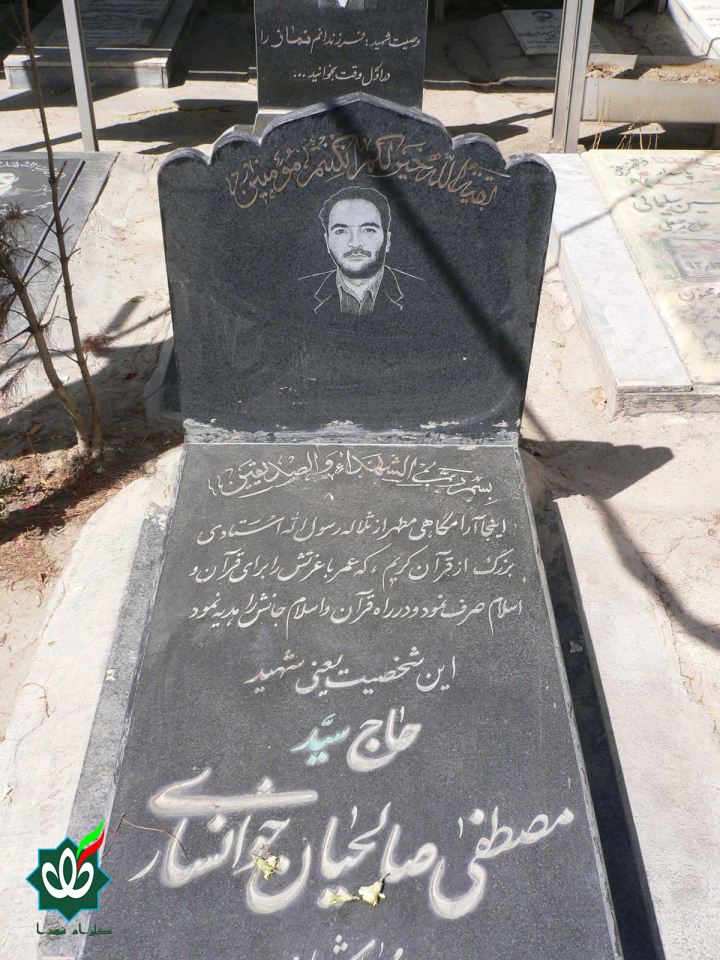 وصیت شهید: فرزندانم نماز را
در اول وقت بخوانید ...
بقیة الله خیر لکم ان کنتم مؤمنین
بسم رب الشهداء و الصدیقین
اینجا آرامگاهی مطهر از ثلاله رسول الله استادی
بزرگ از قرآن کریم، که عمر با عزتش را برای قرآن و
اسلام صرف نمود و در راه قرآن و اسلام جانش را هدیه نمود
این شخصیت یعنی شهید
حاج سید
مصطفی صالحیان خوانساری
گلزار شهدا